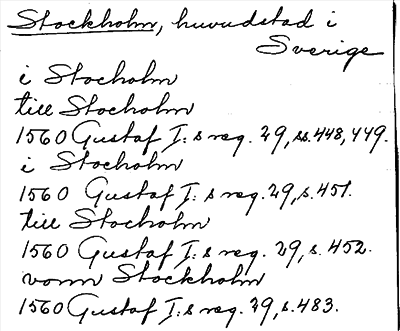 Stockholm, huvudstad i
Sverige
i Stocholm
till Stocholm
1560 Gustaf I:s reg. 29, ss. 448, 449.
i Stocholm
1560 Gustaf I:s reg. 29, s. 451.
till Stocholm
1560 Gustaf I:s reg. 29, s. 452.
vonn Stockholm
1560 Gustaf I:s reg. 29, s. 483.